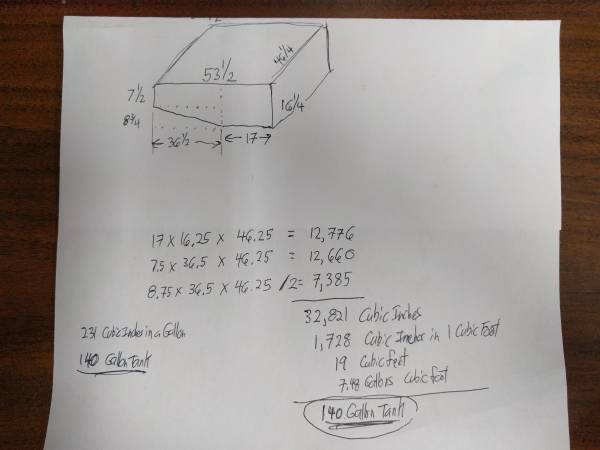 53 1/2
46 1/4
7 1/2
16 1/4
8 3/4
36 1/2
17
17 x 16.25 x 46.25 = 12,776
7.5 x 36.5 x 46.25 = 12,660
8.75 x 36.5 x 46.25 /2 = 7,385
32,821 Cubic Inches
1,728 Cubic Inches in 1 Cubic Foot
19 Cubic feet
7.48 Gallons Cubic foot
140 Gallon Tank
231 Cubic Inches in a Gallon
140 Gallon Tank